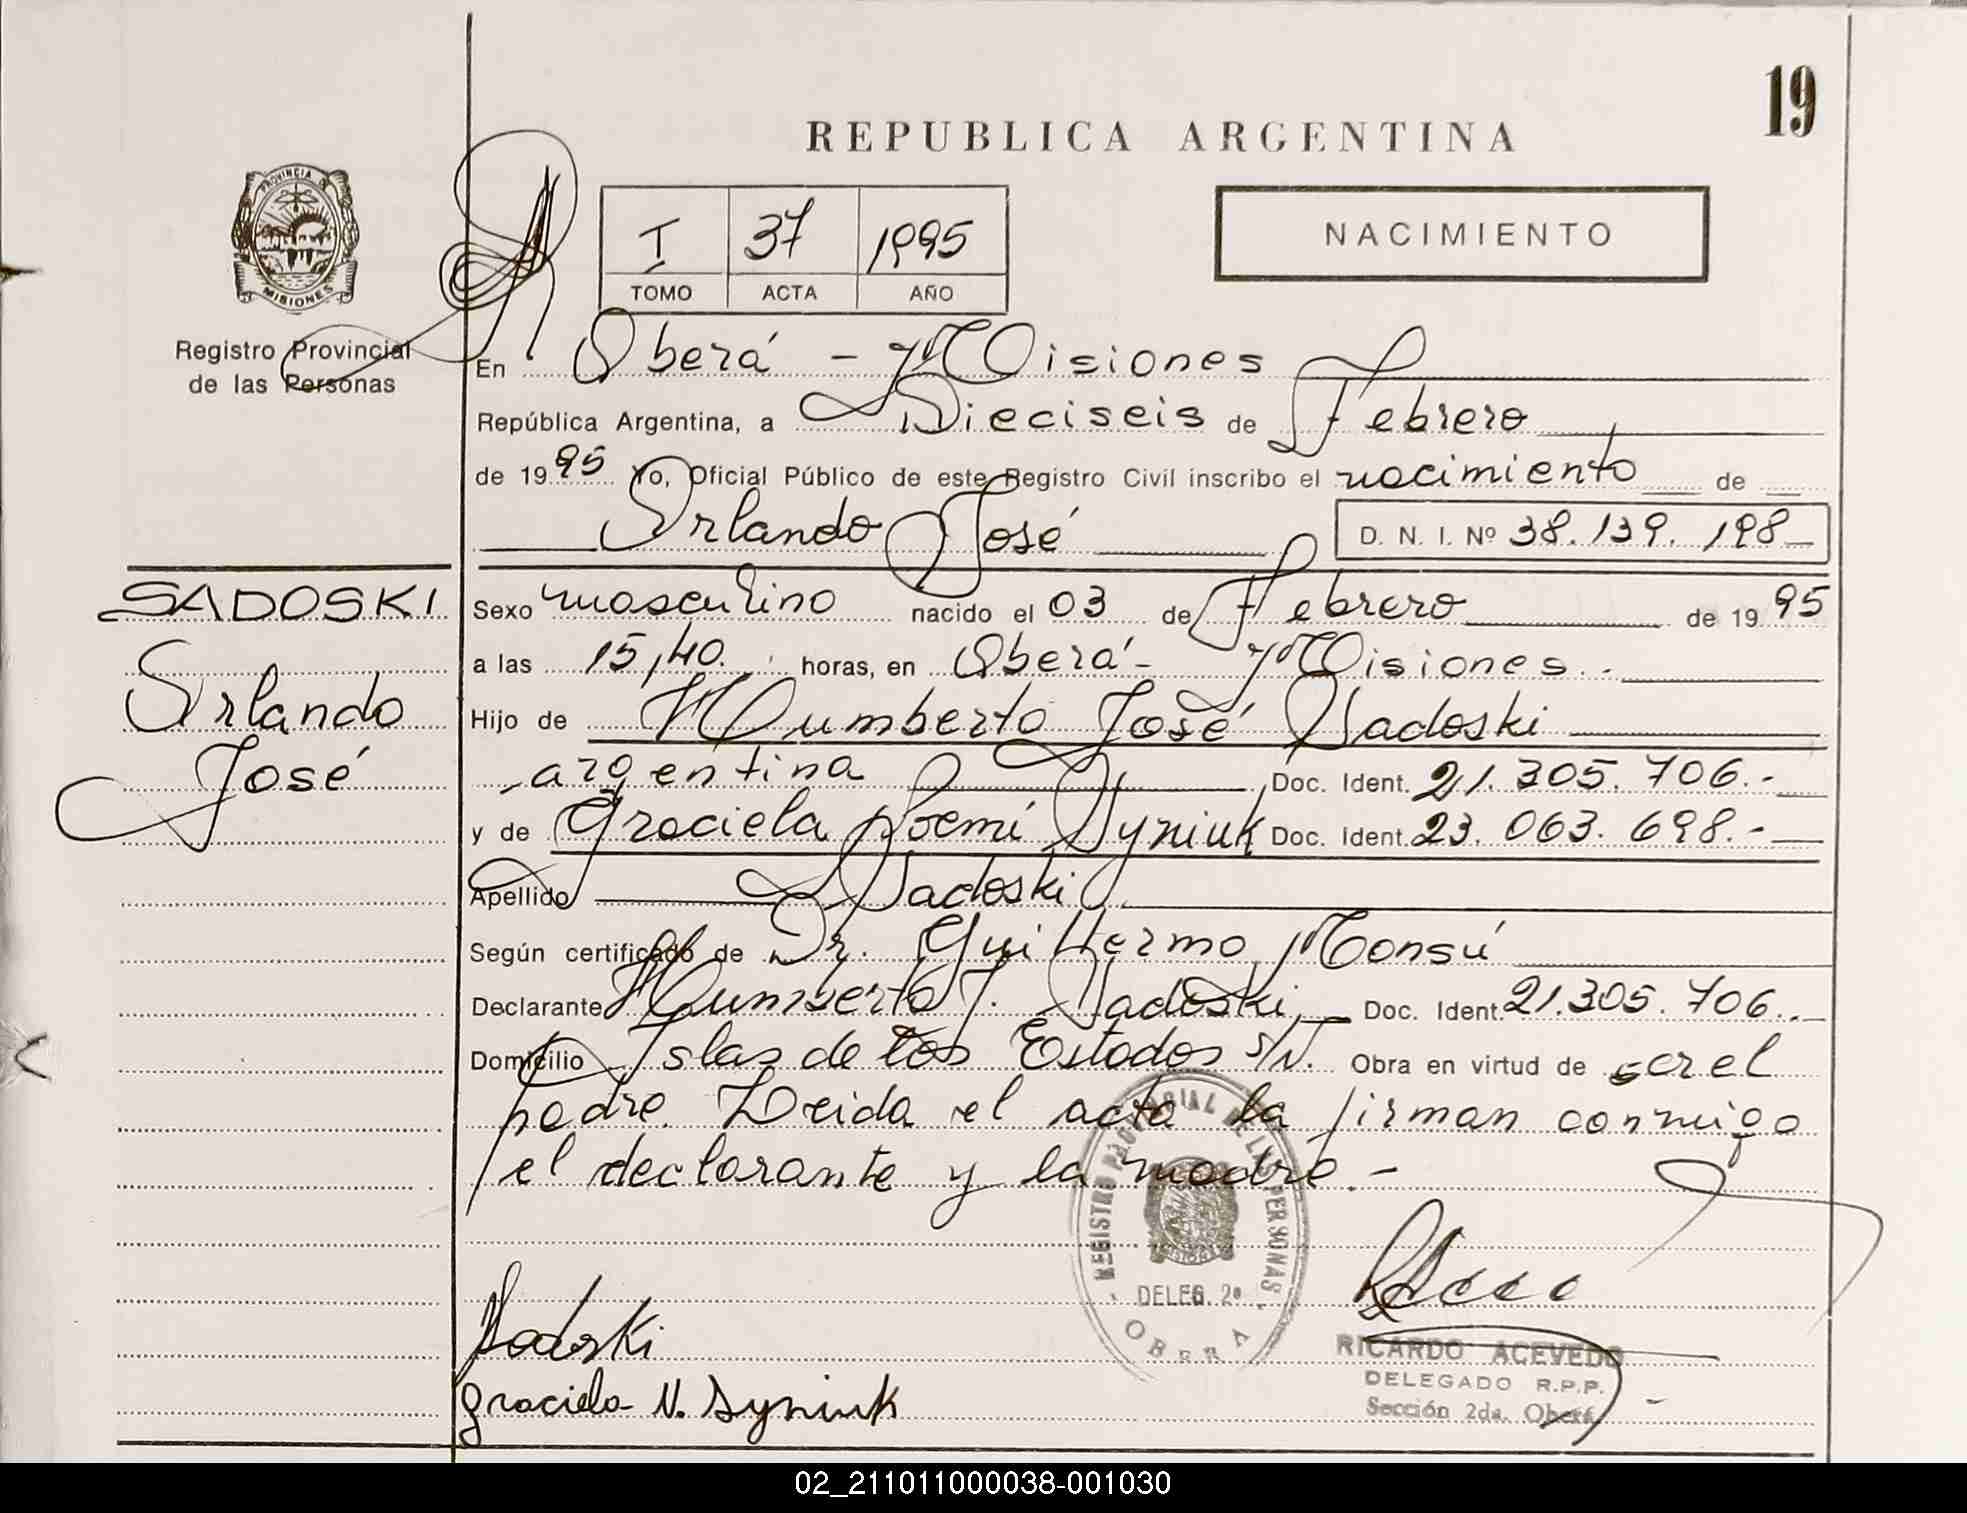 19
REPUBLICA ARGENTINA
PROVINCIA DE
MISIONES
Registro Provincial
de las Personas
I 37 1995
TOMO ACTA AÑO
NACIMIENTO
En Oberá - Misiones
República Argentina, a Dieciseis de Febrero
de 1995 Yo, Oficial Público de este Registro Civil inscribo el nacimiento de
Orlando José D. N. I. Nº 38.139.198
SADOSKI
Orlando
José
Sexo masculino nacido el 03 de Febrero de 1995
a las 15,40. horas, en Oberá - Misiones.
Hijo de Humberto José Sadoski
argentina Doc. Ident. 21.305.706.-
y de Graciela Noemí Syniuk Doc. Ident. 23.063.698.-
Apellido Sadoski
Según certificado de Dr. Guillermo Monsú
Declarante Humberto J. Sadoski Doc. Ident. 21.305.706.
Domicilio Islas de los Estados s/N. Obra en virtud de ser el
padre. Leida el acta la firman conmigo
el declarante y la madre.-
REGISTRO PROVINCIAL DE LAS PERSONAS
DELEG. 2ª
OBERA
Sadoski
Graciela N. Syniuk
RICARDO ACEVEDO
DELEGADO R.P.P.
Sección 2da. Oberá
02_211011000038-001030